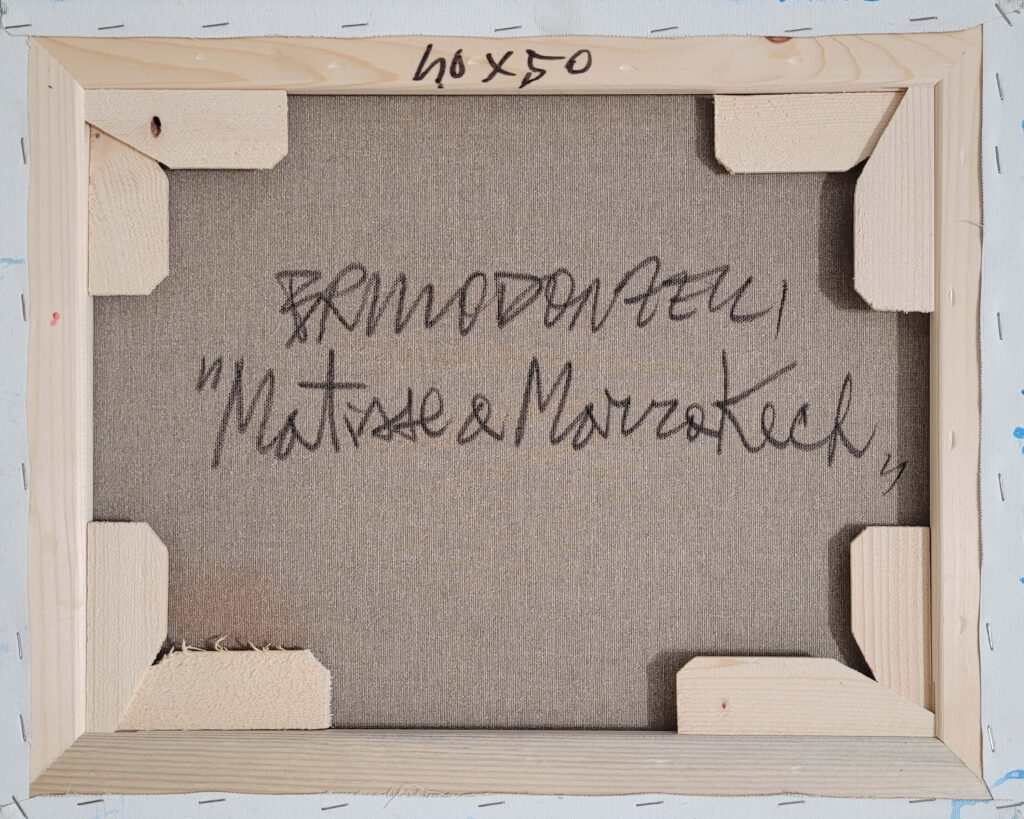 40x50
BRUNO DONZELLI
"Matisse a Marrakech"